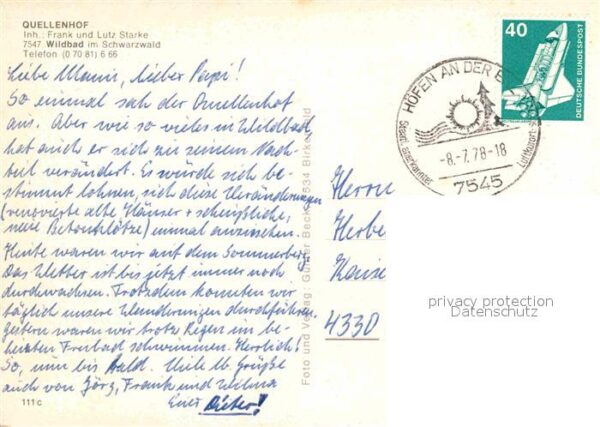 QUELLENHOF
Inh.: Frank und Lutz Starke
7547 Wildbad im Schwarzwald
Telefon (0 70 81) 6 66
Liebe Mami, lieber Papi!
So einmal sah der Quellenhof
aus. Aber wie so vieles in Wildbad
hat auch er sich zu seinem Nach-
teil verändert. Es würde sich be-
stimmt lohnen, sich diese Veränderungen
(renovierte alte Häuser + scheußliche,
neue Betonklötze) einmal anzusehen.
Heute waren wir auf dem Sommerberg.
Das Wetter ist bis jetzt immer noch
durchwachsen. Trotzdem konnten wir
täglich unsere Wanderungen durchführen.
Gestern waren wir trotz Regen im be-
heizten Freibad schwimmen. Herrlich!
So, nun bis bald. Viele lb. Grüße
auch von Jörg, Frank und Wilma
Euer Dieter!
111c
Foto und Verlag: Günter Beck 7534 Birkenfeld
40
DEUTSCHE BUNDESPOST
HÖFEN AN DER
-8.-7.78-18
7545
Herrn
4330
privacy protection
Datenschutz